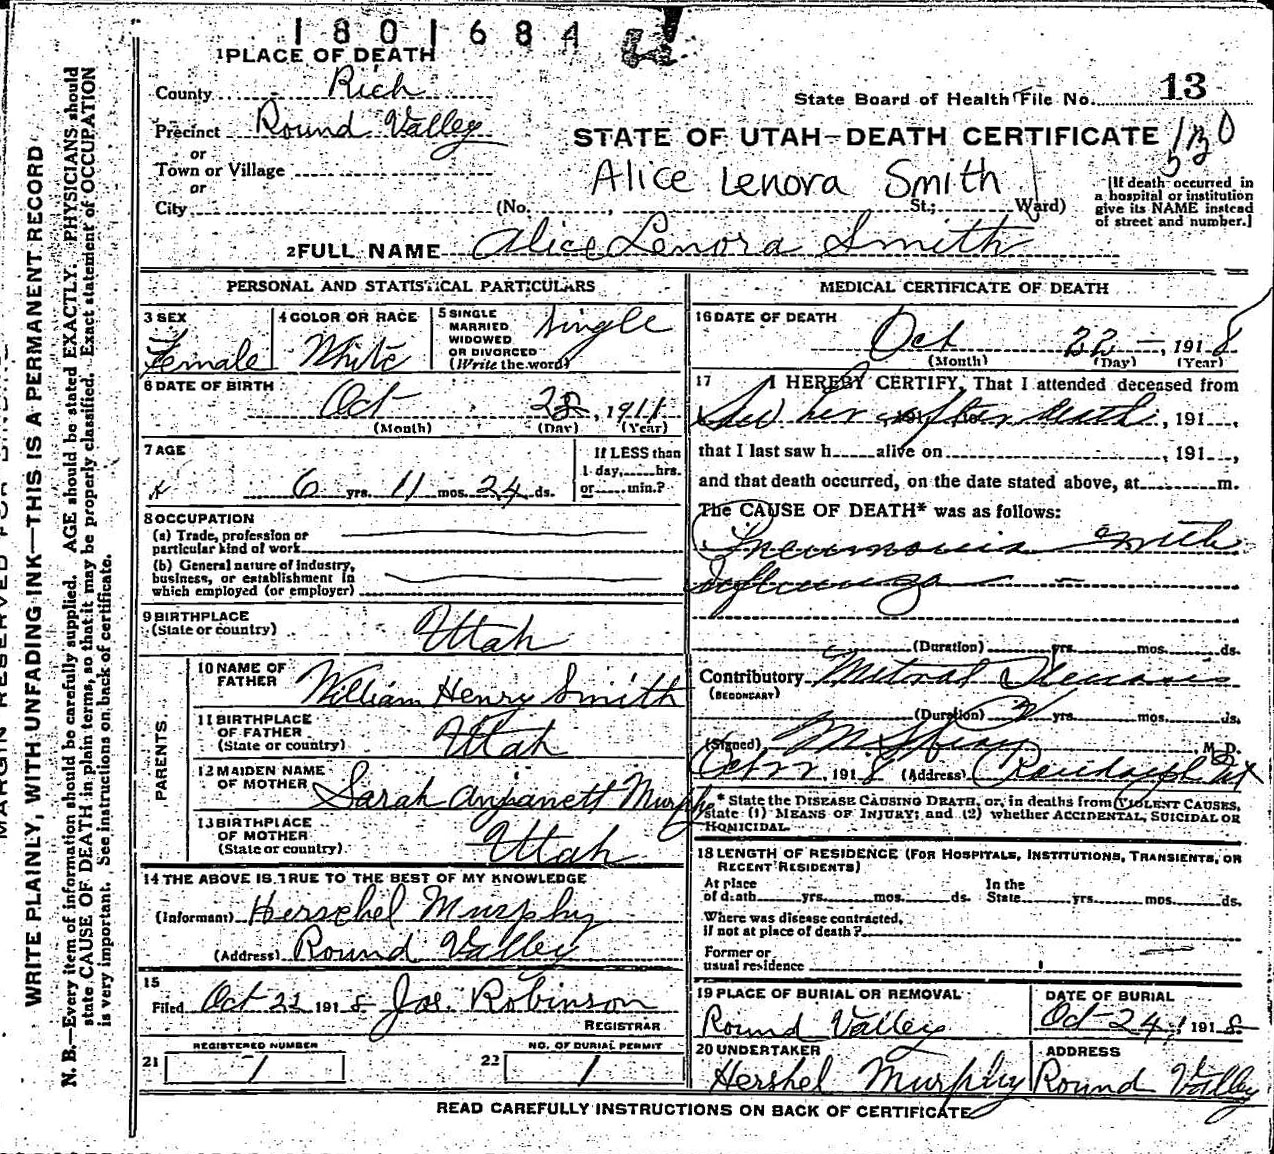 1801684
1 PLACE OF DEATH
County Rich
State Board of Health File No. 13
Precinct Round Valley
STATE OF UTAH—DEATH CERTIFICATE
or
Town or Village
Alice Lenora Smith
or
City (No. , St.; Ward)
[If death occurred in
a hospital or institution
give its NAME instead
of street and number.]
2 FULL NAME Alice Lenora Smith
PERSONAL AND STATISTICAL PARTICULARS
3 SEX
Female
4 COLOR OR RACE
White
5 SINGLE
MARRIED
WIDOWED
OR DIVORCED
(Write the word)
Single
6 DATE OF BIRTH
Oct 28, 1911
(Month) (Day) (Year)
7 AGE
6 yrs. 11 mos. 24 ds.
If LESS than
1 day, hrs.
or min.?
8 OCCUPATION
(a) Trade, profession or
particular kind of work
(b) General nature of industry,
business, or establishment in
which employed (or employer)
9 BIRTHPLACE
(State or country)
Utah
PARENTS
10 NAME OF
FATHER
William Henry Smith
11 BIRTHPLACE
OF FATHER
(State or country)
Utah
12 MAIDEN NAME
OF MOTHER
Sarah Anjanett Murphy
13 BIRTHPLACE
OF MOTHER
(State or country)
Utah
14 THE ABOVE IS TRUE TO THE BEST OF MY KNOWLEDGE
(Informant) Herschel Murphy
(Address) Round Valley
15
Filed Oct 22 1918 Jos. Robinson
REGISTRAR
21 REGISTERED NUMBER
1
22 NO. OF BURIAL PERMIT
1
MEDICAL CERTIFICATE OF DEATH
16 DATE OF DEATH
Oct 22 —, 1918
(Month) (Day) (Year)
17 I HEREBY CERTIFY, That I attended deceased from
Saw her after death, 191 ,
that I last saw h alive on , 191 ,
and that death occurred, on the date stated above, at m.
The CAUSE OF DEATH* was as follows:
Pneumonia with
Influenza
(Duration) yrs. mos. ds.
Contributory Mitral Stenosis
(SECONDARY)
(Duration) yrs. mos. ds.
(Signed) M. D.
Oct 22, 1918 (Address) Randolph Ut
* State the DISEASE CAUSING DEATH, or, in deaths from VIOLENT CAUSES,
state (1) MEANS OF INJURY; and (2) whether ACCIDENTAL, SUICIDAL OR
HOMICIDAL.
18 LENGTH OF RESIDENCE (FOR HOSPITALS, INSTITUTIONS, TRANSIENTS, OR
RECENT RESIDENTS)
At place
of death yrs. mos. ds.
In the
State yrs. mos. ds.
Where was disease contracted,
if not at place of death?
Former or
usual residence
19 PLACE OF BURIAL OR REMOVAL
Round Valley
DATE OF BURIAL
Oct 24, 1918
20 UNDERTAKER
Hershel Murphy
ADDRESS
Round Valley
READ CAREFULLY INSTRUCTIONS ON BACK OF CERTIFICATE
WRITE PLAINLY, WITH UNFADING INK—THIS IS A PERMANENT RECORD
N. B.—Every item of information should be carefully supplied. AGE should be stated EXACTLY. PHYSICIANS should
state CAUSE OF DEATH in plain terms, so that it may be properly classified. Exact statement of OCCUPATION
is very important. See instructions on back of certificate.